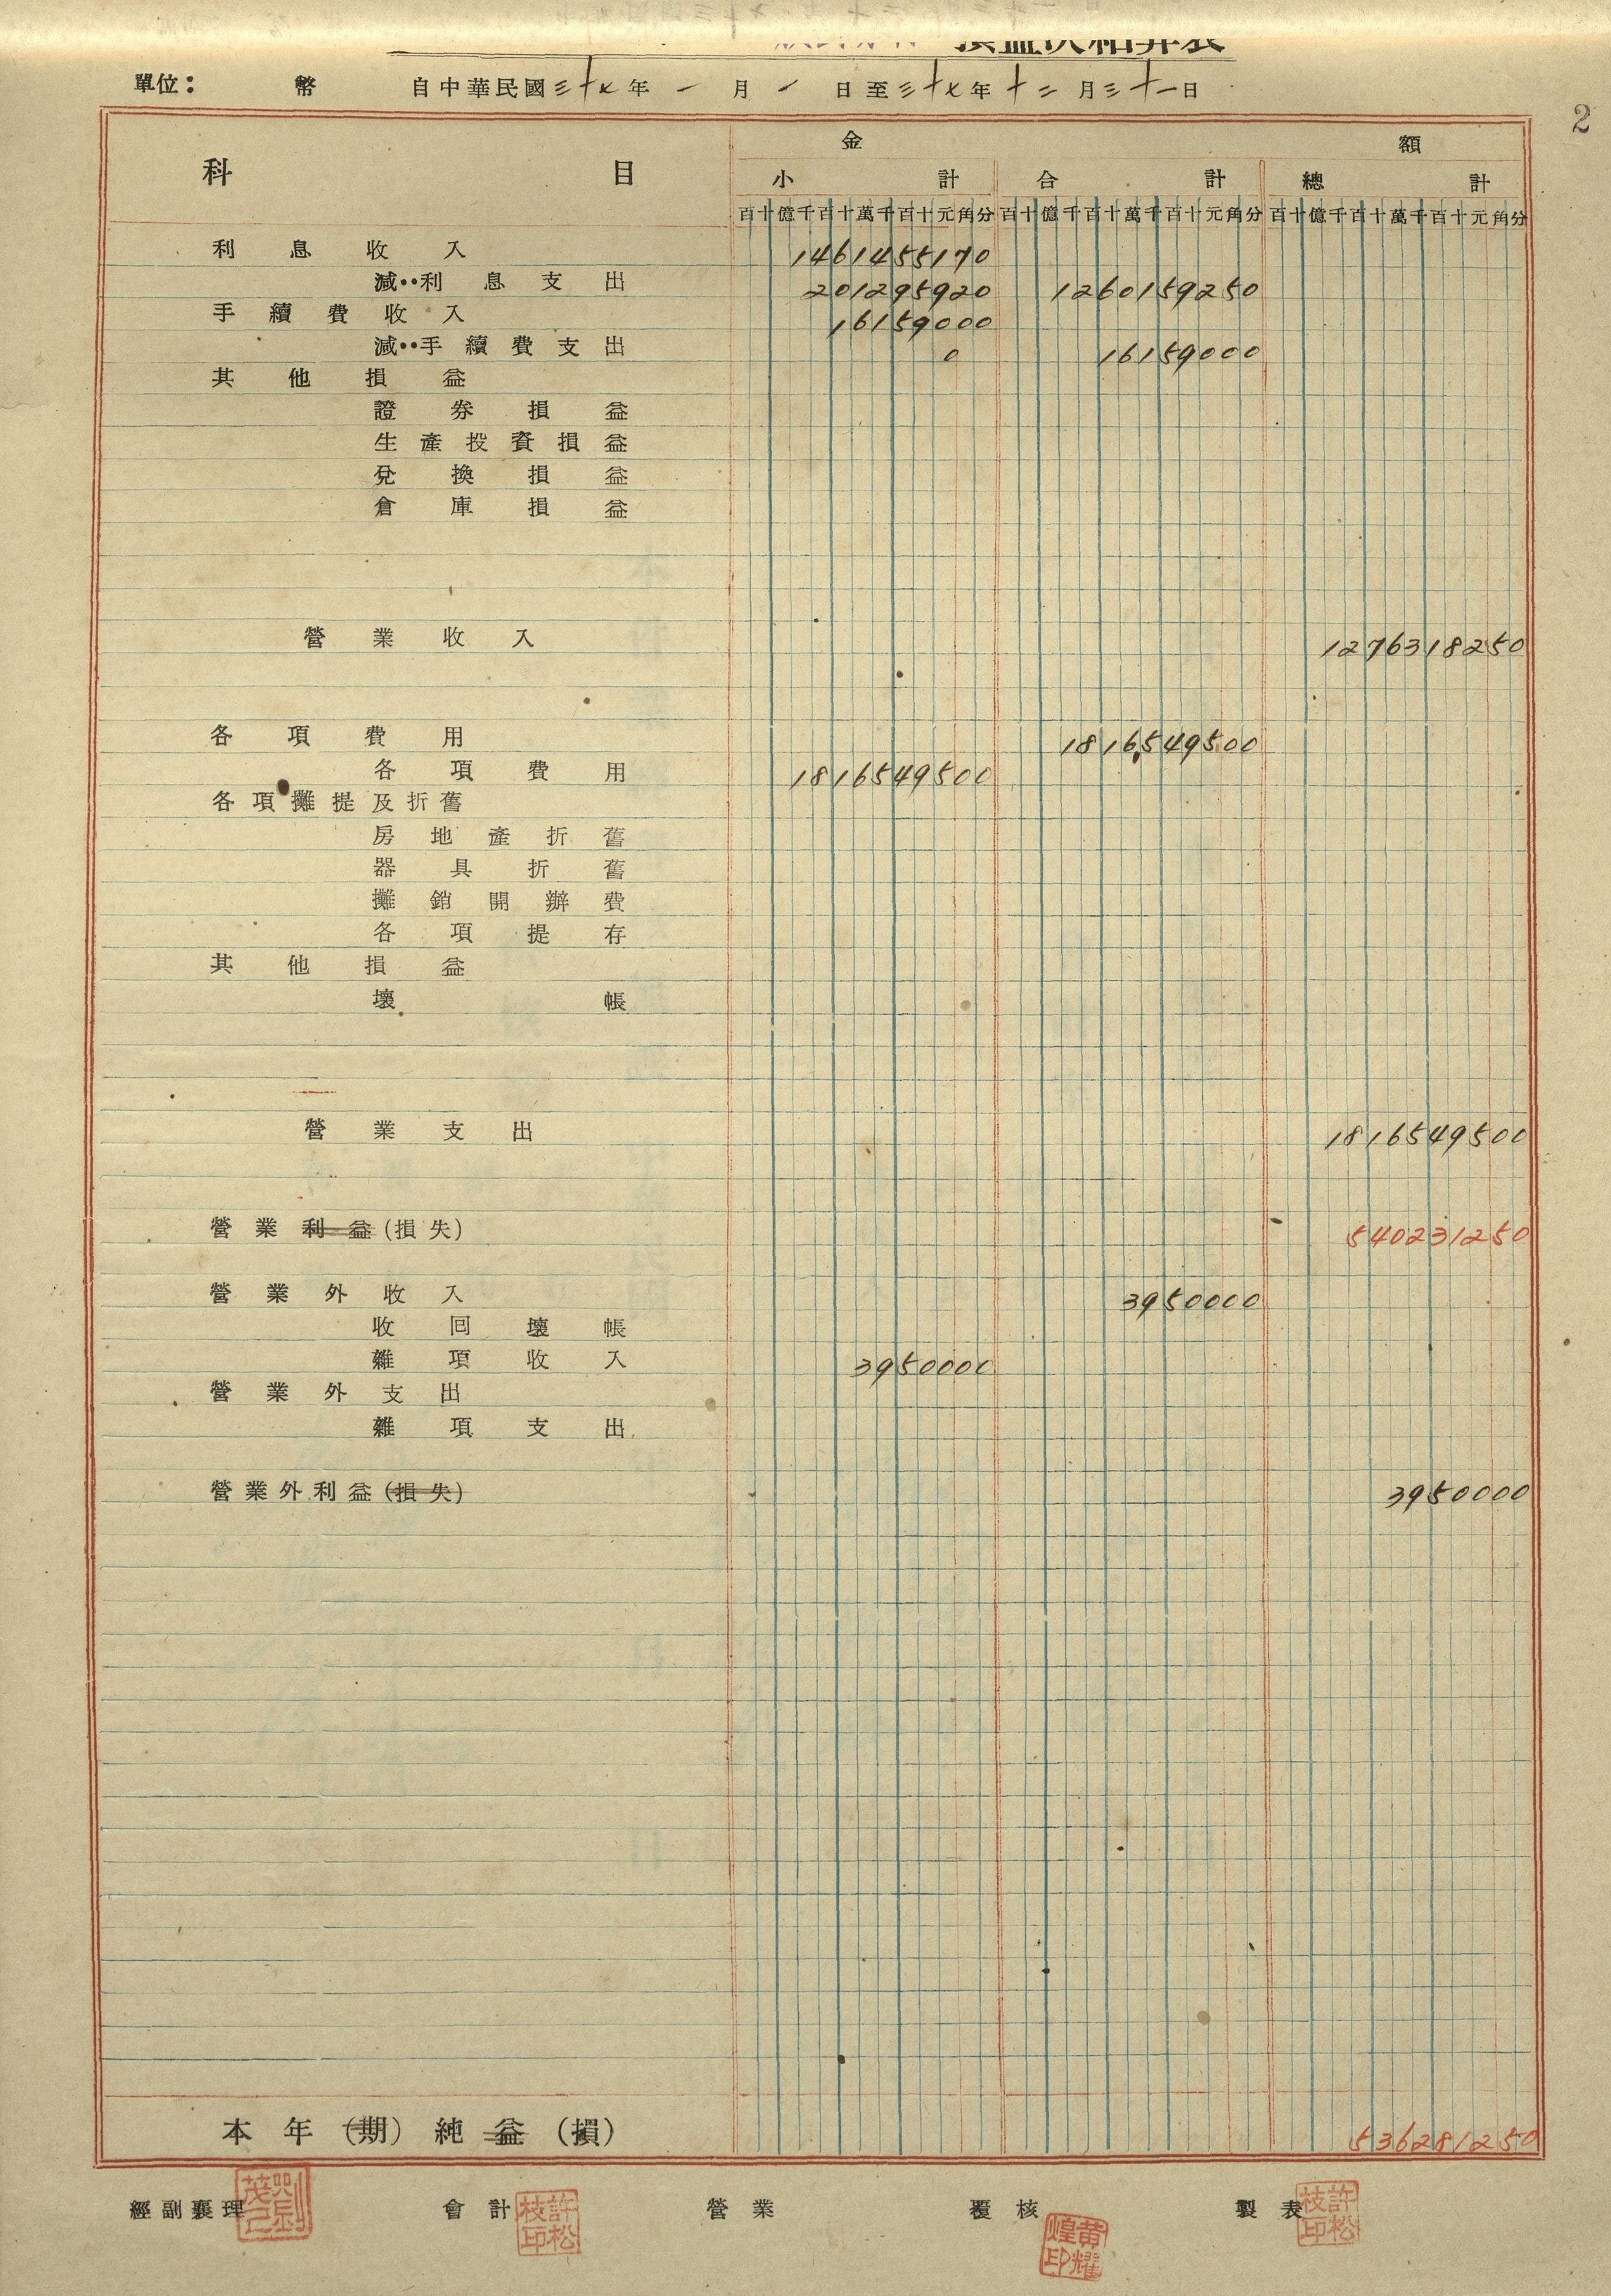 損益決算表
單位： 幣 自中華民國三十七年一月一日至三十七年十二月三十一日
2
科目 金額
小計 合計 總計
百十億千百十萬千百十元角分 百十億千百十萬千百十元角分 百十億千百十萬千百十元角分
利息收入 1461455170
減：利息支出 201295920 1260159250
手續費收入 16159000
減：手續費支出 0 16159000
其他損益
證券損益
生產投資損益
兌換損益
倉庫損益
營業收入 1276318250
各項費用 1816549500
各項費用 1816549500
各項攤提及折舊
房地產折舊
器具折舊
攤銷開辦費
各項提存
其他損益
壞帳
營業支出 1816549500
營業利益(損失) 540231250
營業外收入 3950000
收回壞帳
雜項收入 3950000
營業外支出
雜項支出
營業外利益(損失) 3950000
本年(期)純益(損) 536281250
經副襄理 會計 許松枝印 營業 覆核 黃耀煌印 製表 許松枝印